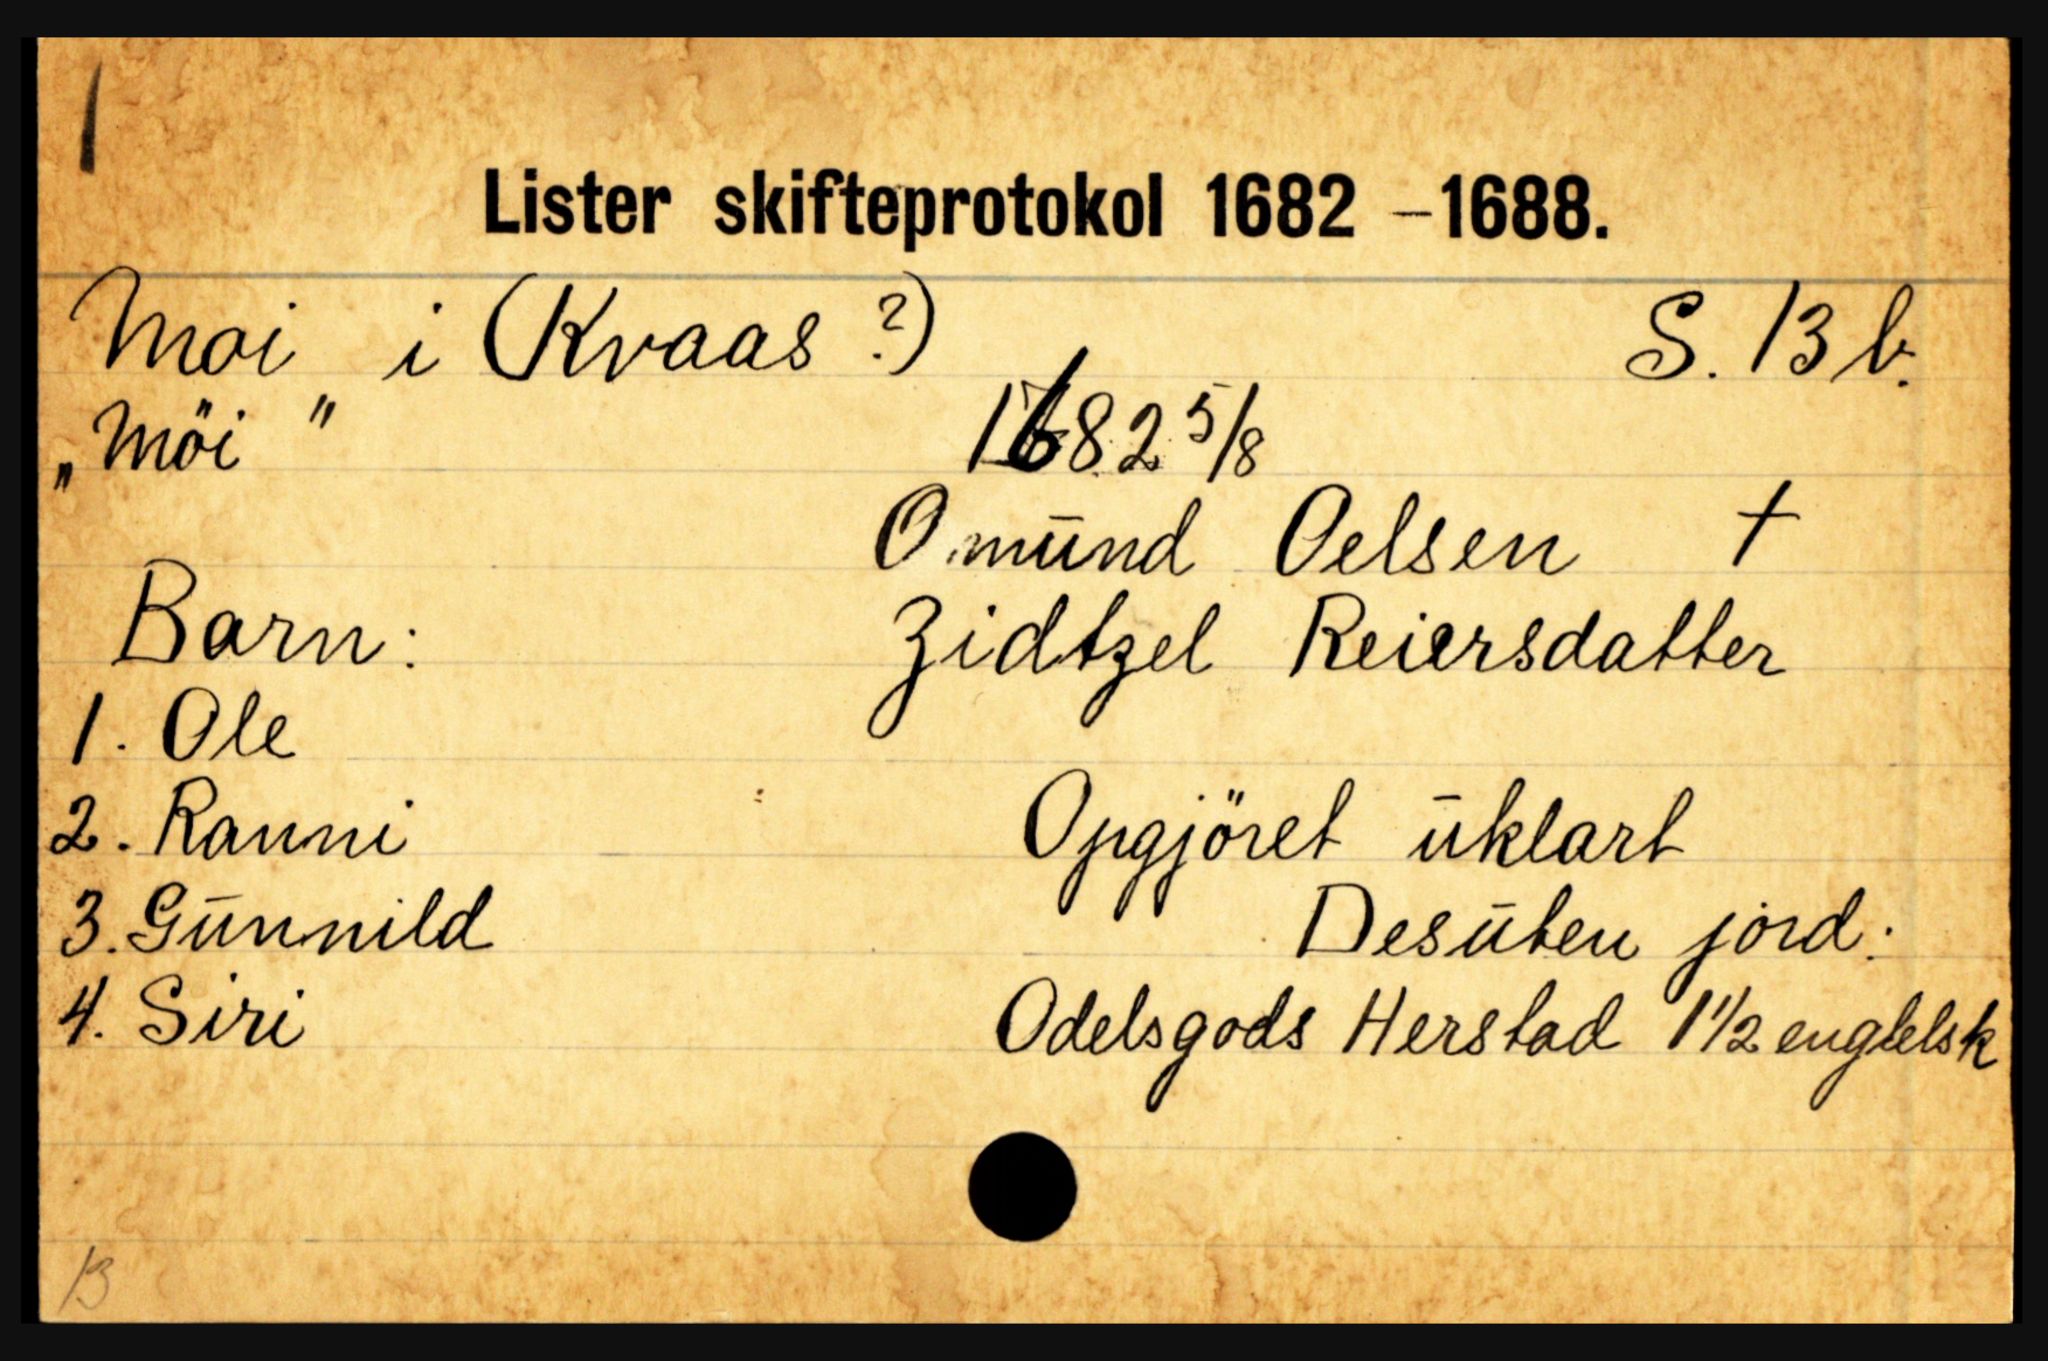 1
Lister skifteprotokol 1682 – 1688.
Moi i (Kvaas ?) S. 13 b.
„Möi" 1682 5/8
Omund Oelsen †
Barn: Zidtzel Reiersdatter
1. Ole
2. Ranni Opgjöret uklart
3. Gunnild Desuten jord:
4. Siri Odelsgods Herstad 1 1/2 englelsk
13